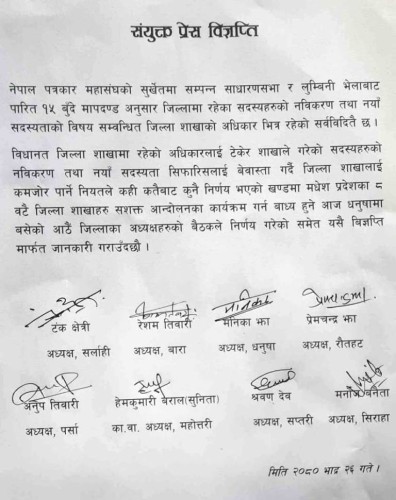 संयुक्त प्रेस विज्ञप्ति
नेपाल पत्रकार महासंघको सुर्खेतमा सम्पन्न साधारणसभा र लुम्बिनी भेलाबाट
पारित १५ बुँदे मापदण्ड अनुसार जिल्लामा रहेका सदस्यहरुको नविकरण तथा नयाँ
सदस्यताको विषय सम्वन्धित जिल्ला शाखाको अधिकार भित्र रहेको सर्वविदितै छ ।
विधानत जिल्ला शाखामा रहेको अधिकारलाई टेकेर शाखाले गरेको सदस्यहरुको
नविकरण तथा नयाँ सदस्यता सिफारिसलाई बेवास्ता गर्दै जिल्ला शाखालाई
कमजोर पार्ने नियतले कही कतैबाट कुनै निर्णय भएको खण्डमा मधेश प्रदेशका ८
वटै जिल्ला शाखाहरु सशक्त आन्दोलनका कार्यक्रम गर्न बाध्य हुने आज धनुषामा
बसेको आठै जिल्लाका अध्यक्षहरुको बैठकले निर्णय गरेको समेत यसै विज्ञप्ति
मार्फत जानकारी गराउँदछौ ।
टंक क्षेत्री रेशम तिवारी मनिका झा प्रेमचन्द्र झा
अध्यक्ष, सर्लाही अध्यक्ष, बारा अध्यक्ष, धनुषा अध्यक्ष, रौतहट
अनुप तिवारी हेमकुमारी बराल(सुनिता) श्रवण देव मनोज बनैता
अध्यक्ष, पर्सा का.वा. अध्यक्ष, महोत्तरी अध्यक्ष, सप्तरी अध्यक्ष, सिराहा
मिति २०८० भाद्र २६ गते ।